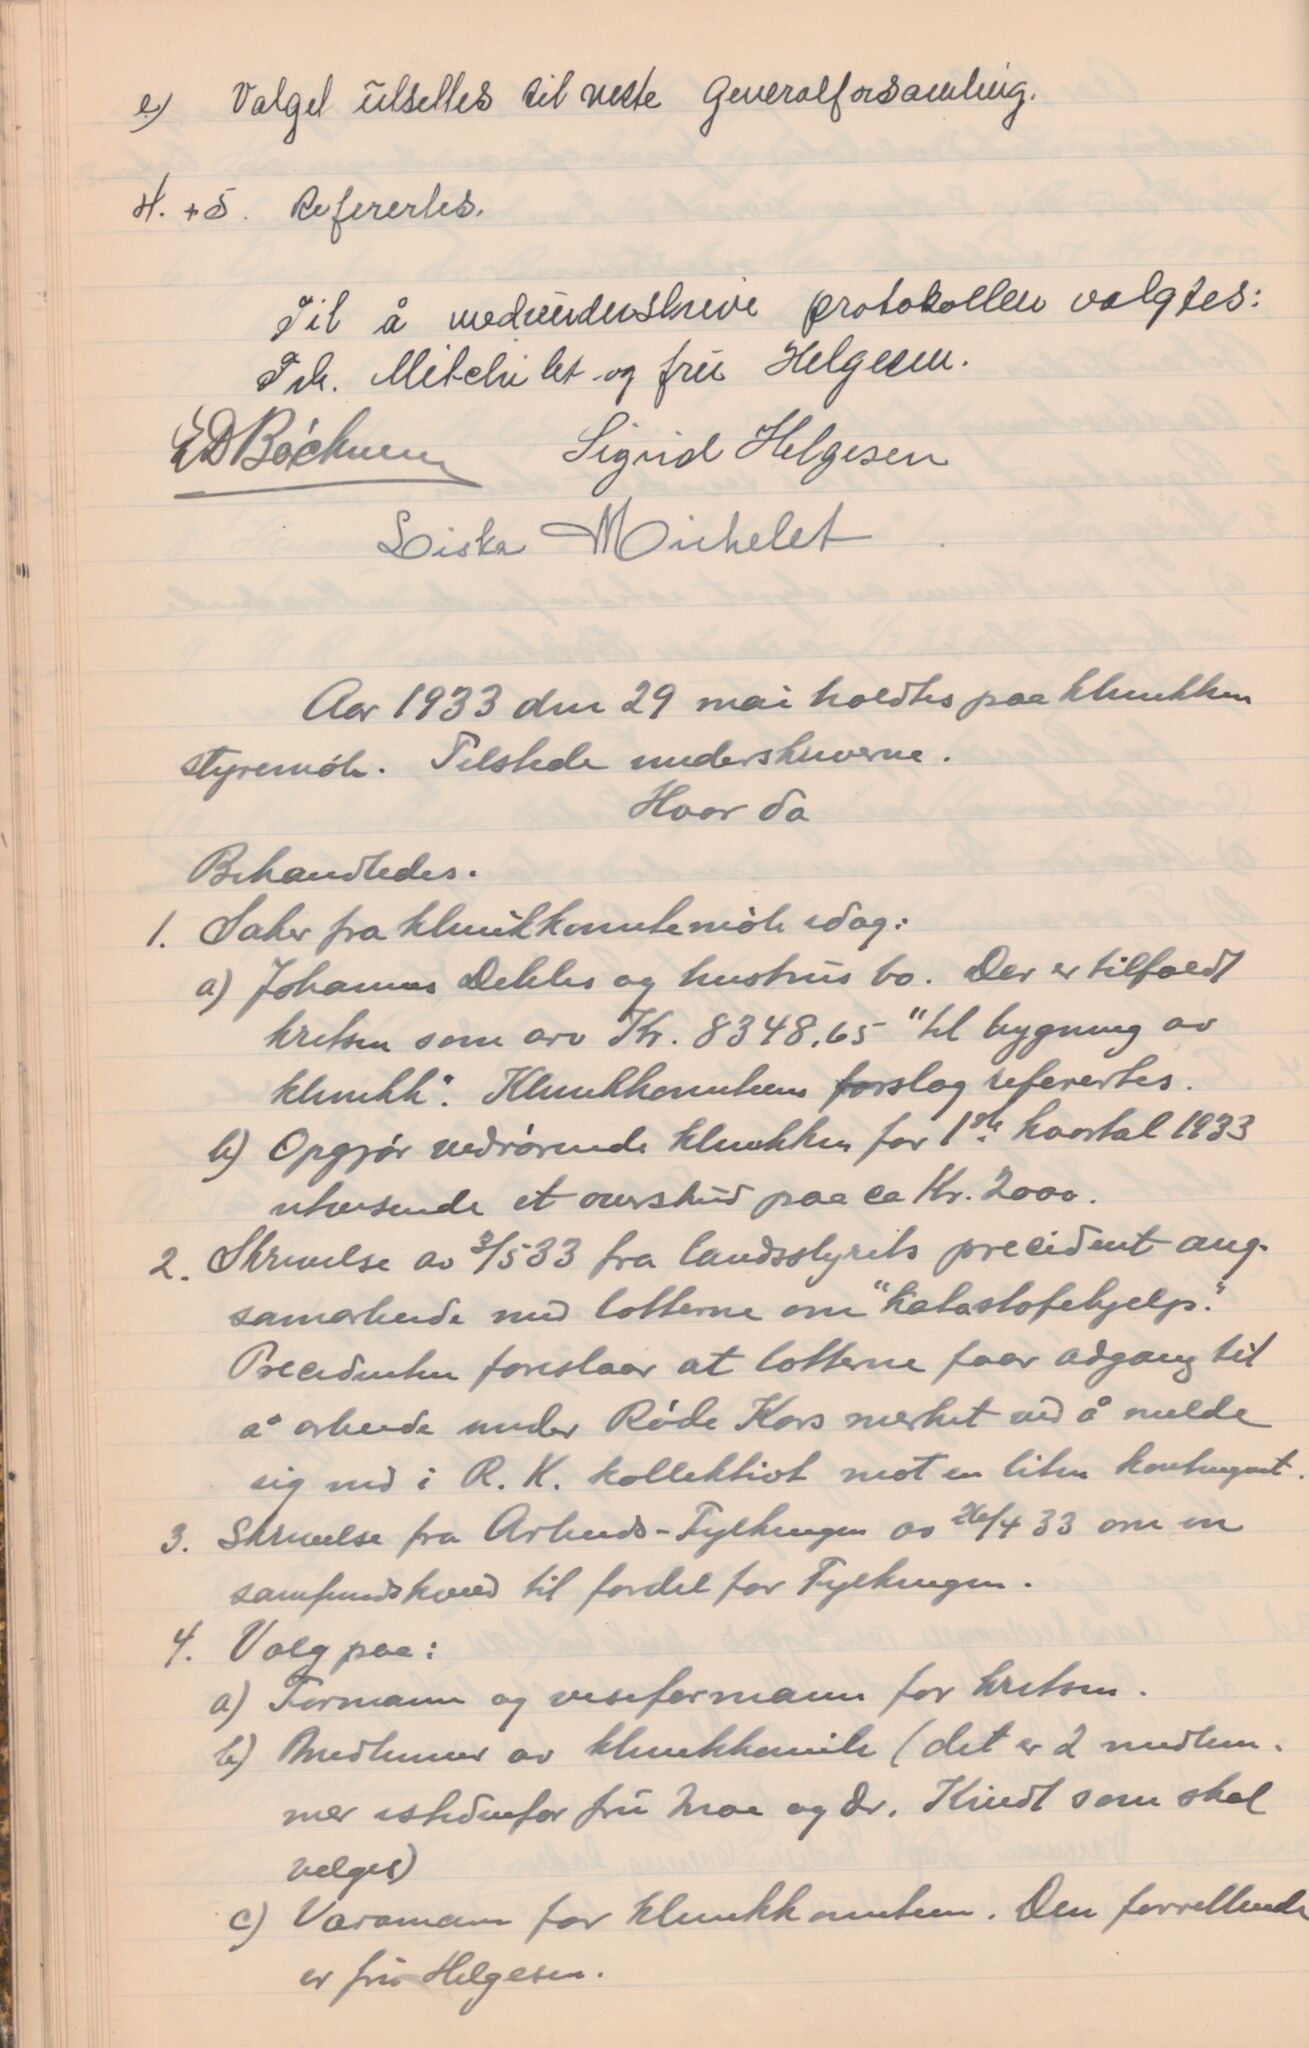 e) Valget utsettes til neste Generalforsamling.
4. + 5. Refereertes.
Til å medunderskrive protokollen valgtes:
Frk. Mitchilet og fru Helgesen.
Sigrid Helgesen
Michelet
Aar 1933 den 29 mai holdtes paa klinikken
styremöte. Tilstede underskriverne.
Hvor da
Behandledes.
1. Saker fra klinikkomitemöte idag:
a) Johannes Dehles og hustrus bo. Der er tilfaldt
kretsen som arv Kr. 8348,65 "til bygning av
klinikk". Klinikkomiteens forslag refereertes.
b) Opgjör vedrörende klinikken for 1ste kvartal 1933
utvisende et overskud paa ca Kr. 2000.
2. Skrivelse av 3/5 33 fra landsstyrets precident ang.
samarbeide med lotterne om "Katastofehjelp."
Precidenten foreslaar at lotterne faar adgang til
å arbeide under Røde Kors merket ved å melde
sig ind i R. K. kollektivt mot en liten kontingent.
3. Skrivelse fra Arbeids-Fylkingen av 26/4 33 om en
samfundskveld til fordel for Fylkingen.
4. Valg paa:
a) Formann og viseformann for kretsen.
b) Medlemer av klinikkomite (det er 2 medlem-
mer istedenfor fru Moe og Dr. Kindt som skal
velges)
c) Varamann for klinikkomiteen. Den forrettende
er fru Helgesen.